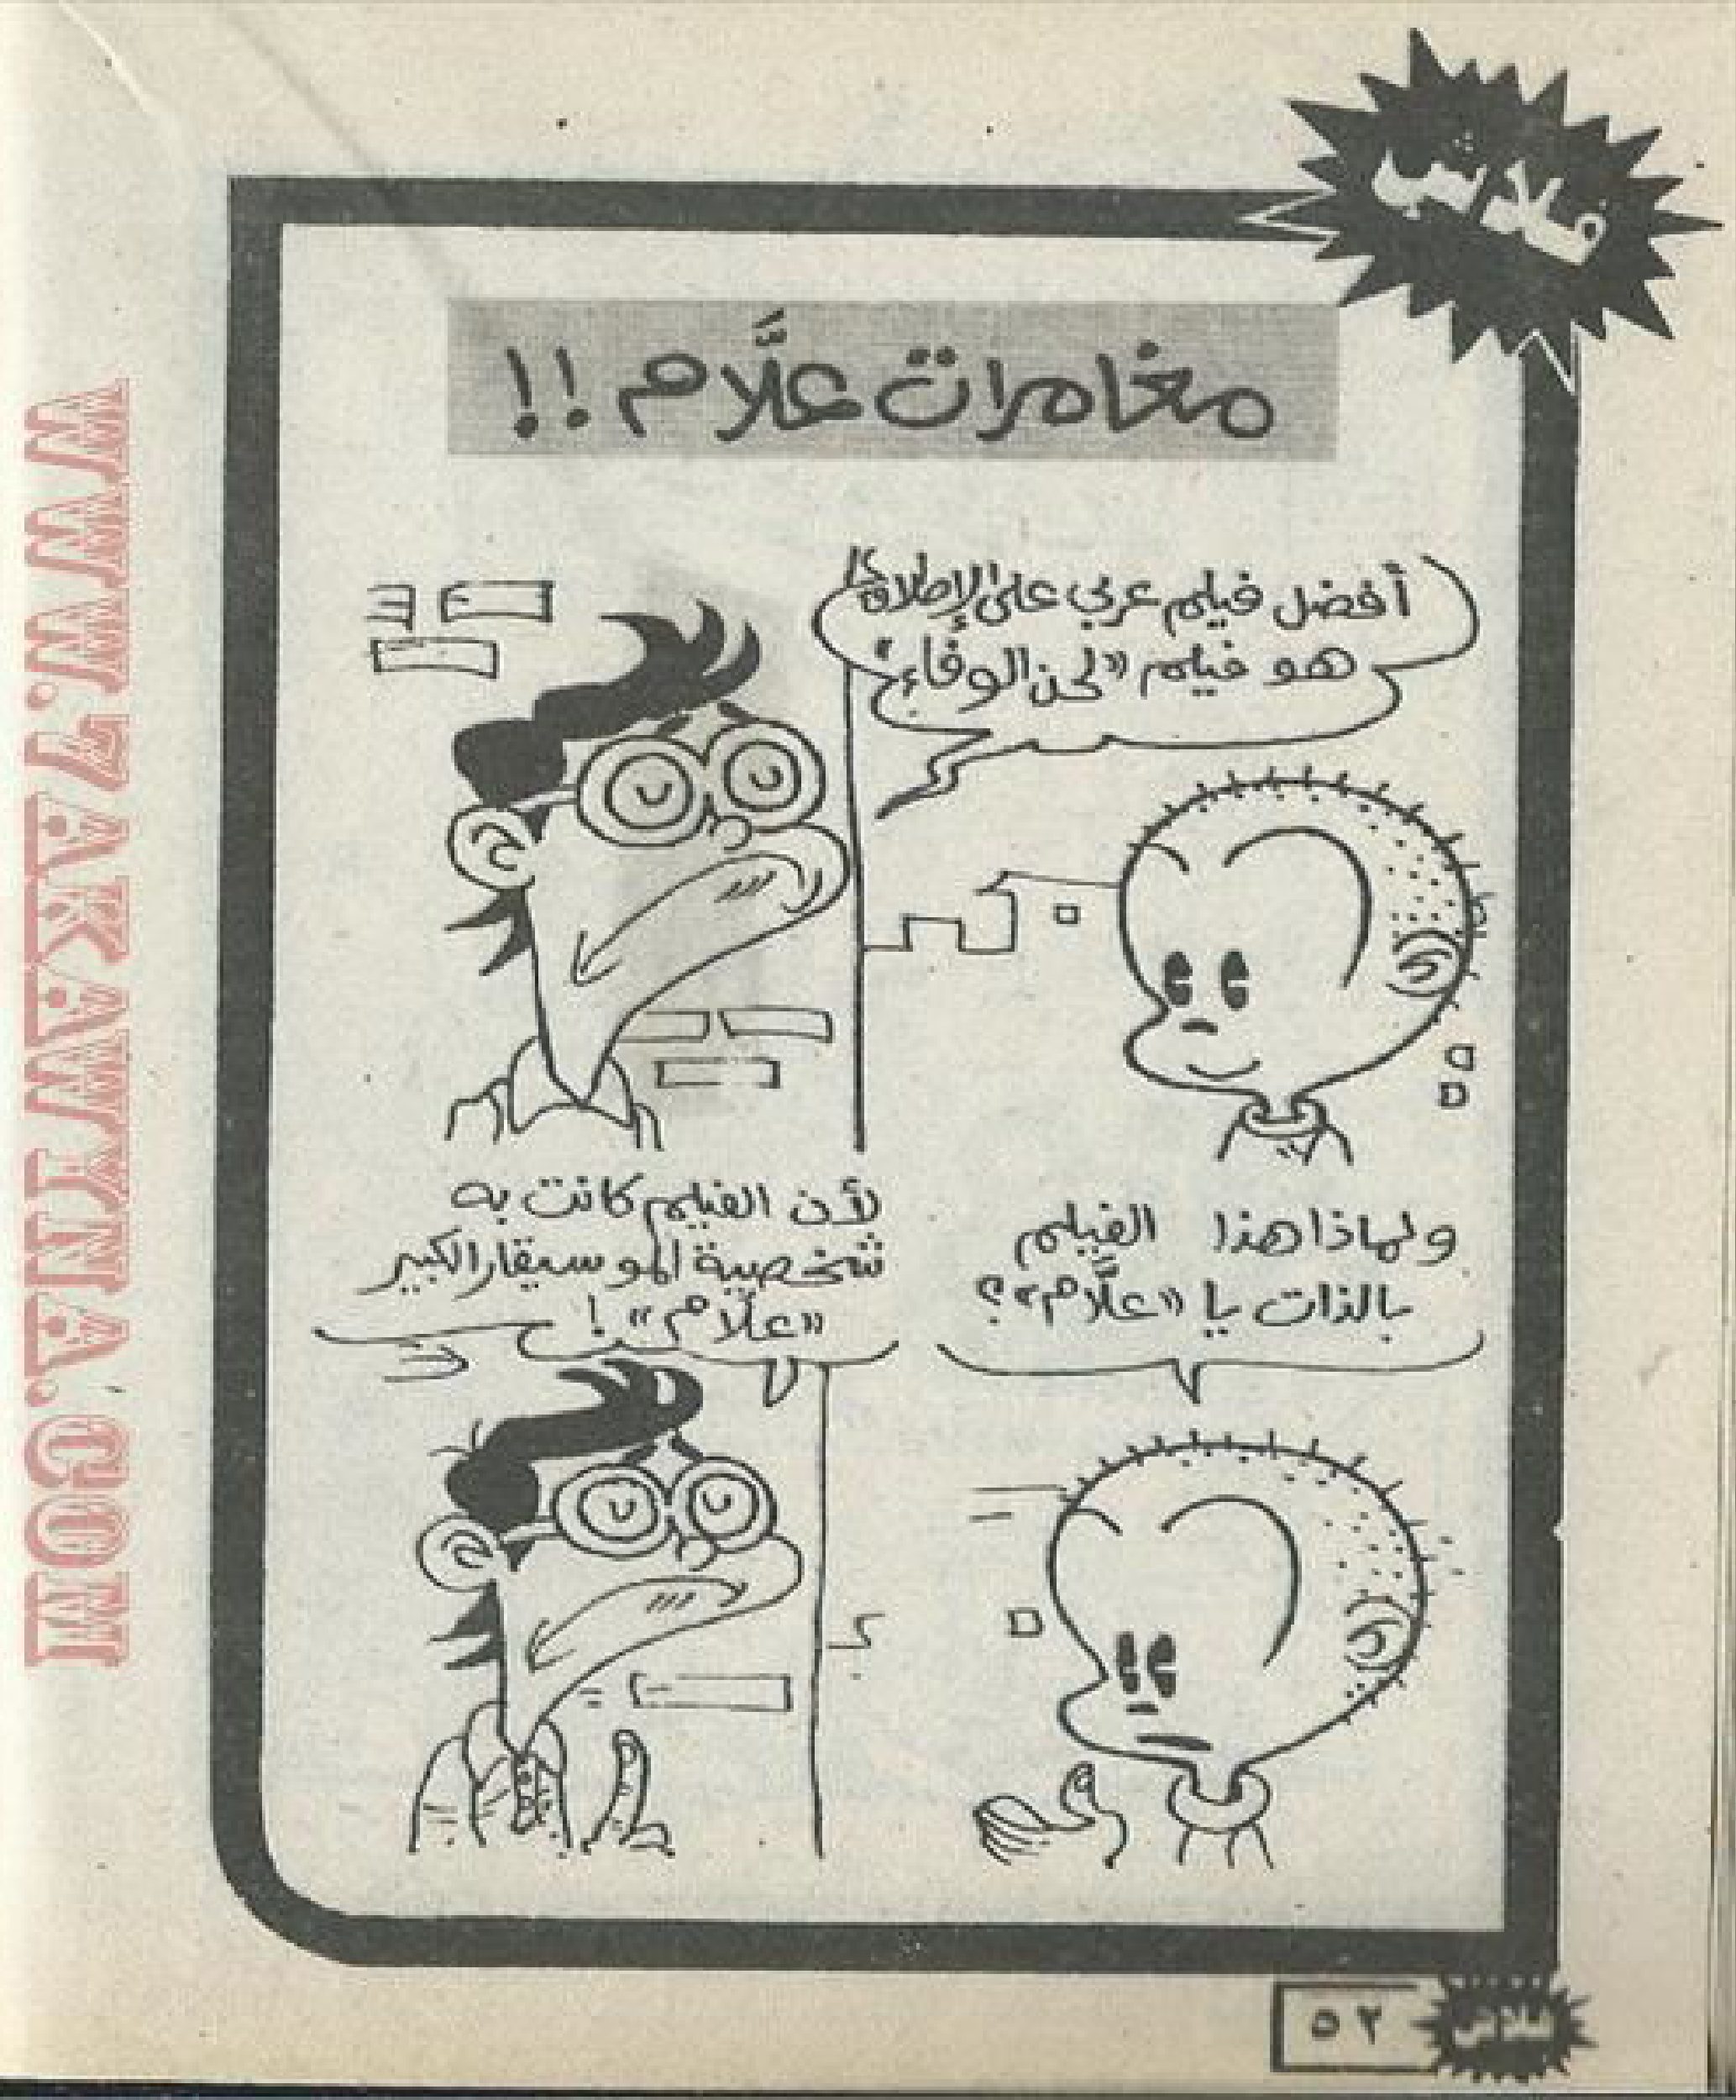 فلاش
مغامرات علَّام !!
أفضل فيلم عربي على الإطلاق
هو فيلم «لحن الوفاء»
ولماذا هذا الفيلم
بالذات يا «علَّام»؟
لأن الفيلم كانت به
شخصية الموسيقار الكبير
«علَّام» !
٥٢
فلاش
WWW.7AKAWITNA.COM